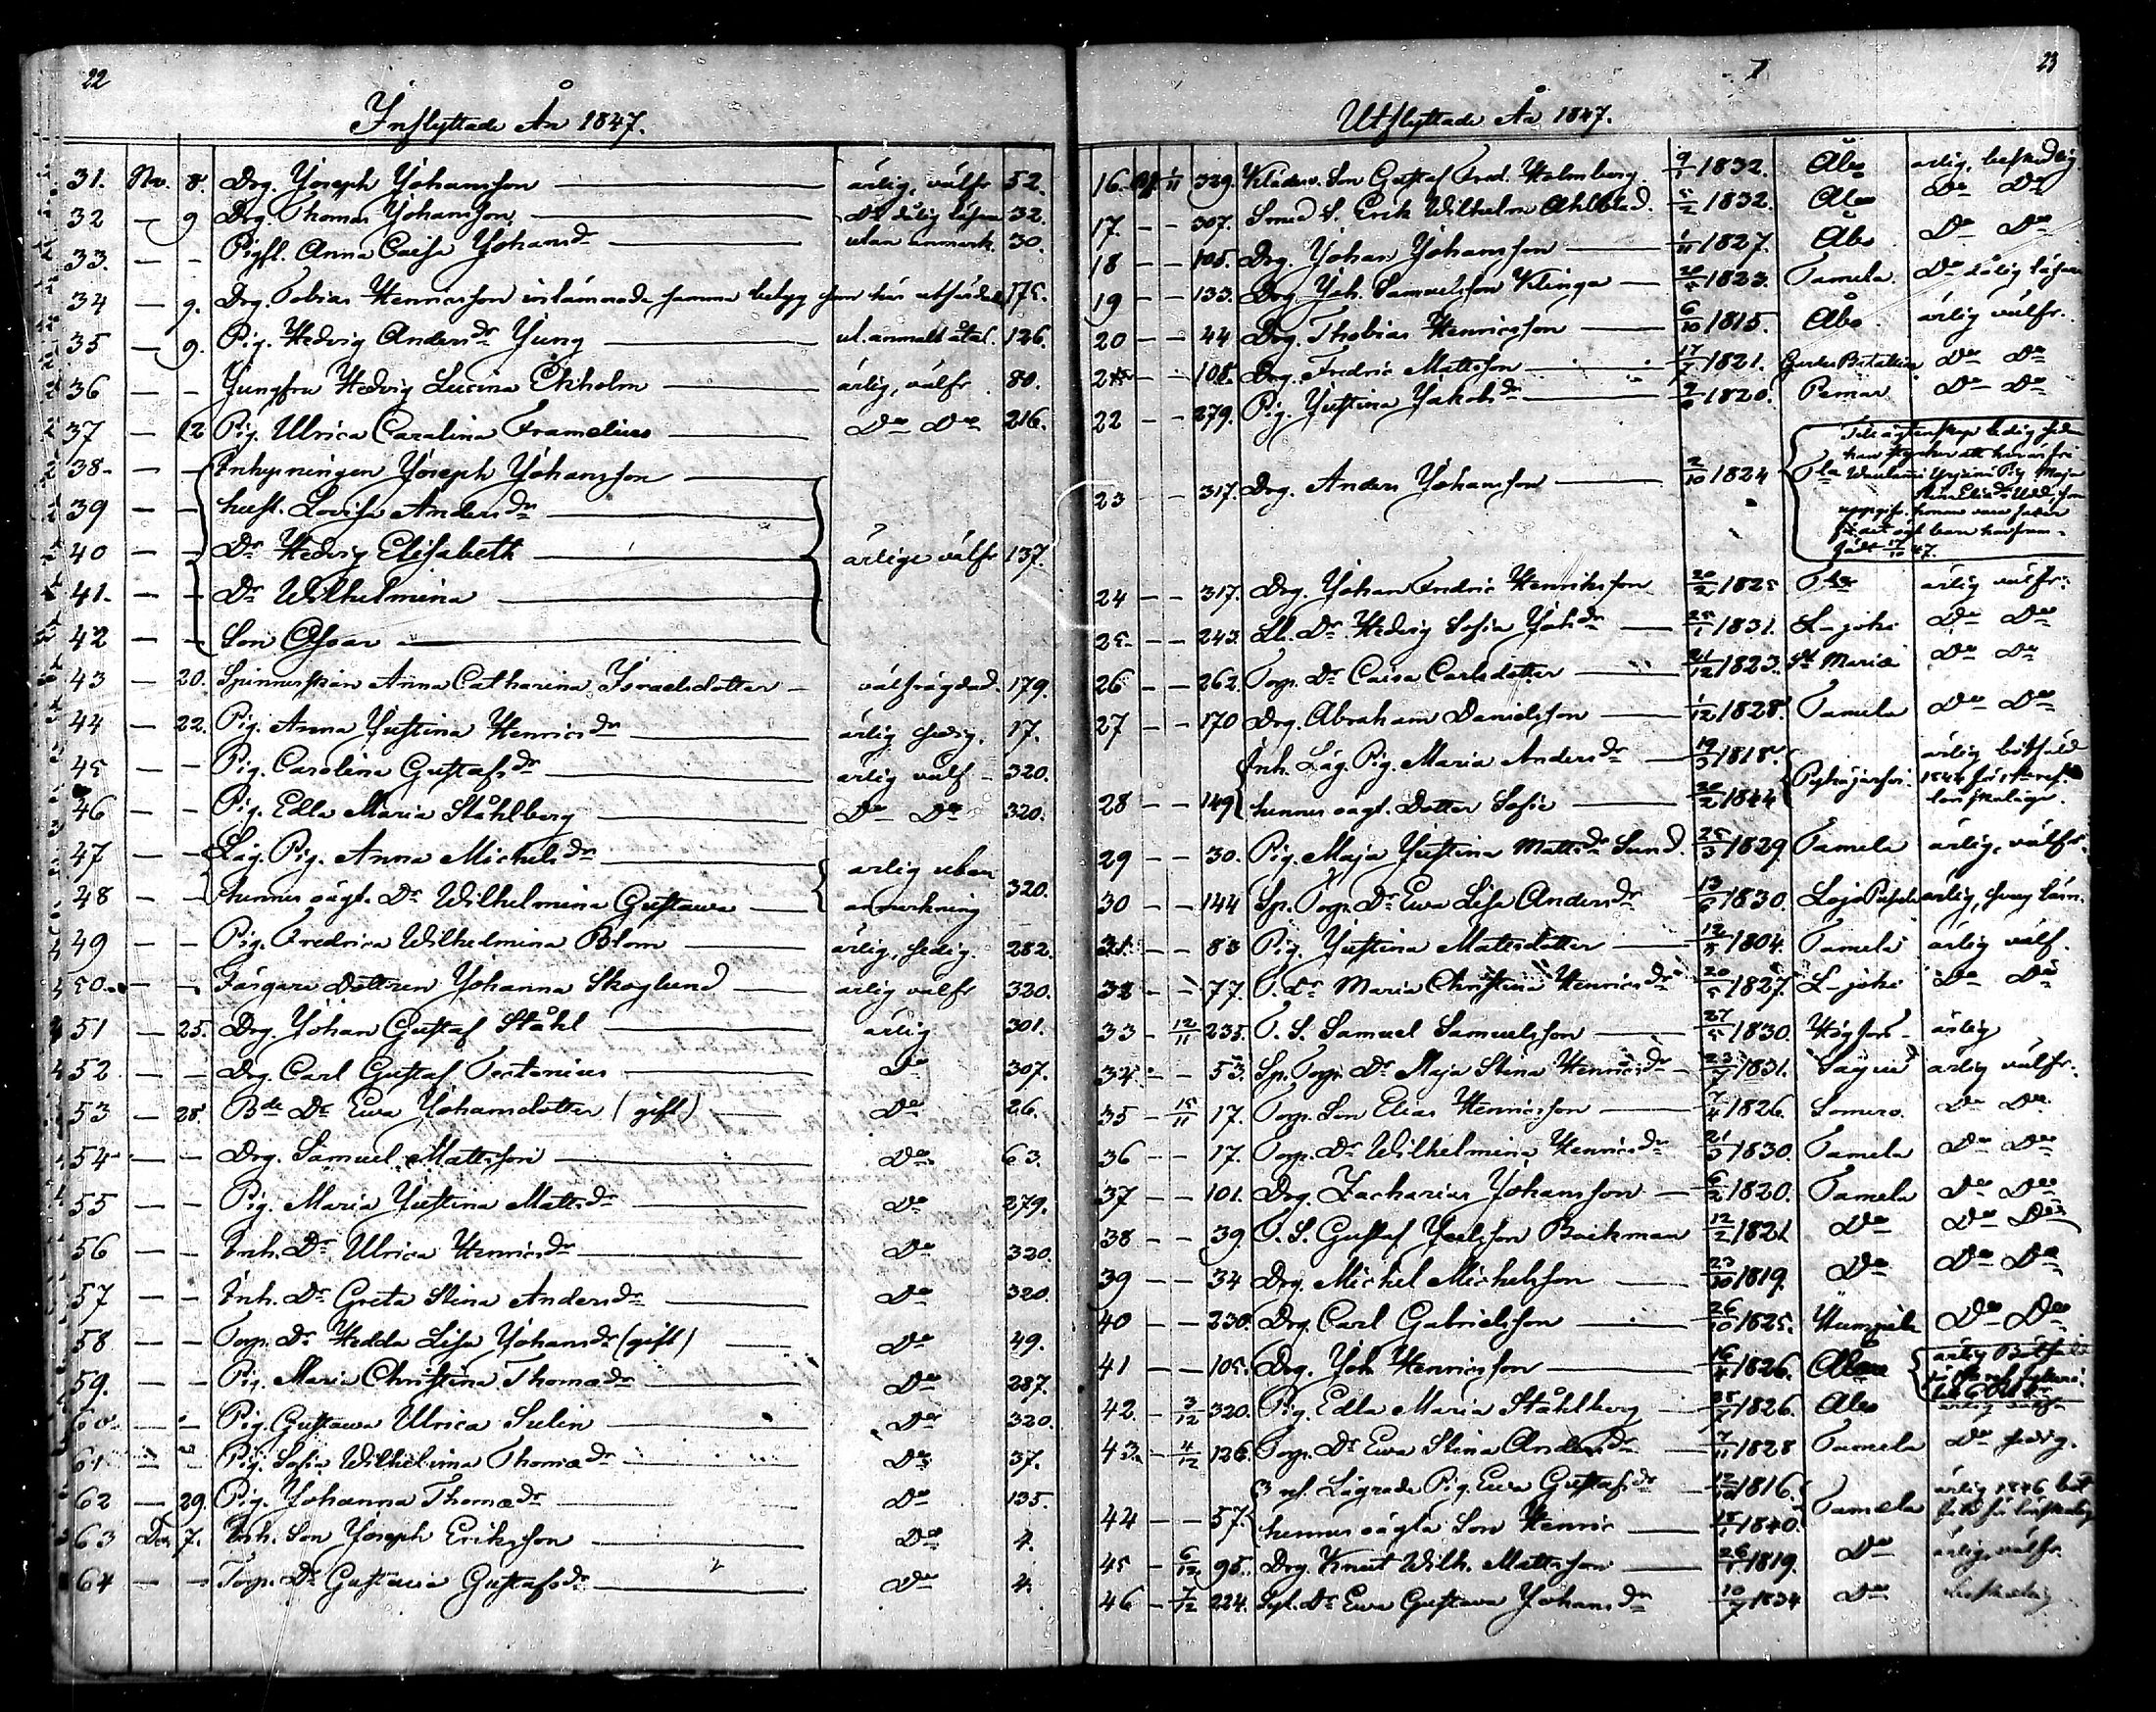 22
Inflyttade År 1847.
31. Nov. 8. Drg. Joseph Johansson ärlig, välfr 52.
32 — 9 Drg. Thomas Johansson Do dålig läsare 32.
33. — — Pigfl. Anna Caisa Johansdr utan anmärk. 30.
34 — 9. Drg. Tobias Henricsson inlämnade samma betyg som här utfärdats 175.
35 — 9. Pig. Hedvig Andersdr Ljung ut. anmält åtal. 126.
36 — — Jungfru Hedvig Lucina Ekholm ärlig, välfr. 80.
37 — 12 Pig. Ulrica Carolina Framelius Do Do 216.
38. — — Inhysningen Joseph Johansson
39 — — hust. Lovisa Andersdr
40 — — Dr Hedvig Elisabeth ärlige välfr 137.
41. — — Dr Wilhelmina
42 — — Son Oscar
43 — 20. Spinnerskan Anna Catharina Israelsdotter välfrägdad. 179.
44 — 22. Pig. Anna Justina Henricsdr ärlig sedig. 17.
45 — — Pig. Carolina Gustafsdr ärlig välf 320.
46 — — Pig. Edla Maria Ståhlberg Do Do 320.
47 — — Läg. Pig. Anna Michelsdr ärlig utan
48 — — hennes oägt. Dr Wilhelmina Gustava anmerkning 320.
49 — — Pig. Fredrica Wilhelmina Blom ärlig, sedig. 282.
50. — — Färgare Dottren Johanna Skoglund ärlig välfr 320.
51 — 25. Drg. Johan Gustaf Ståhl ärlig 301.
52 — — Drg. Carl Gustaf Fortenius Do 307.
53 — 28. Bde Dr Ewa Johansdotter (gift) Do 26.
54 — — Drg. Samuel Mattsson Do 63.
55 — — Pig. Maria Justina Mattsdr Do 279.
56 — — Inh. Dr Ulrica Henricsdr Do 320.
57 — — Inh. Dr Greta Stina Andersdr Do 320.
58 — — Torp. Dr Hedda Lisa Johansdr (gift) Do 49.
59. — — Pig. Maria Christina Thomasdr Do 287.
60. — — Pig. Gustava Ulrica Sulin Do 320.
61 — — Pig. Sofia Wilhelmina Thomasdr Do 37.
62 — 29. Pig. Johanna Thomasdr Do 135.
63 Dec. 7. Inh. Son Joseph Eriksson Do 4.
64 — — Torp. Dr Gustava Gustafsdr Do 4.
23
Utflyttade År 1847.
16. 1/11 329. Klädesv. Son Gustaf Fred. Holmberg. 9/1 1832. Åbo ärlig, beskedlig.
17. — — 307. Smed S. Erik Wilhelm Ahlblad. 5/2 1832. Åbo Do Do
18 — — 105. Drg. Johan Johansson 1/11 1827. Åbo Do Do
19 — — 133. Drg. Joh. Samuelsson Klinga 1823. Tamela. Do dålig läsare
20 — — 44 Drg. Thobias Henricsson 6/10 1815. Åbo ärlig välfr.
21 — — 108. Drg. Fredric Mattsson 17/7 1821. Gardes Bataillon Do Do
22 — — 279. Pig. Justina Jakobsdr 1820. Pemar Do Do
23 — — 317. Drg. Anders Johansson 2/10 1824 Till ägtenskap ledig
24 — — 317. Drg. Johan Fredric Henriksson 20/2 1825 ärlig välfr.
25. — — 243. Ll. Dr Hedvig Sofia Johsdr 25/1 1831. L-joki Do Do
26 — — 262. Torp. Dr Caisa Carlsdotter 21/12 1823. St Maria Do Do
27 — — 170 Drg. Abraham Danielsson 1/12 1828. Tamela Do Do
Inh. Läg. Pig. Maria Andersdr 19/3 1818. ärlig bötfäld
28 — — 149 hennes oägt. Dotter Sofia 20/2 1844 1846 för
29 — — 30. Pig. Maja Justina Mattsdr Sund. 25/3 1829. Tamela ärlig, välfr.
30 — — 144 Sp. Torp. Dr Ewa Lisa Andersdr 13/6 1830. Lojo ärlig, svag läsn.
31. — — 83 Pig. Justina Mattsdotter 12/5 1804. Tamela ärlig välf.
32 — — 77. T. Dr Maria Christina Henricsdr 20/5 1827. L-joki Do Do
33 — 12/11 235. T. S. Samuel Samuelsson 27/5 1830. Högfors ärlig
34. — — 53. Sp. Torp. Dr Maja Stina Henricsdr 23/7 1831. Sagu ärlig välfr.
35 — 15/11 17. Torp. Son Elias Henricsson 7/4 1826. Somero. Do Do
36 — — 17. Torp. Dr Wilhelmina Henricsdr 21/3 1830. Tamela Do Do
37 — — 101. Drg. Zacharias Johansson 6/2 1820. Tamela Do Do
38 — — 39. T. S. Gustaf Joelsson Backman 12/2 1821 Do Do Do
39 — — 34 Drg. Michel Michelsson 23/10 1819. Do Do Do
40 — — 230. Drg. Carl Gabrielsson 26/10 1825. Humppila Do Do
41 — — 105. Drg. Joh. Henricsson 16/4 1826. Åbo ärlig
42. — 3/12 320. Pig. Edla Maria Ståhlberg 1826. Åbo ärlig välfr
43. — 4/12 126. Torp. Dr Ewa Stina Andersdr 7/11 1828 Tamela Do sedig.
3 res. Lägrade Pig. Ewa Gustafsdr 1816. ärlig 1846 böt
44 — — 57. hennes oägta Son Henric 18/1 1840. Tamela
45 — 6/12 95. Drg. Knut Wilh. Mattsson 26/1 1819. Do ärlig, välfr.
46 — 7/12 224. Dr Ewa Gustava Johansdr 10/7 1834 Do beskedlig